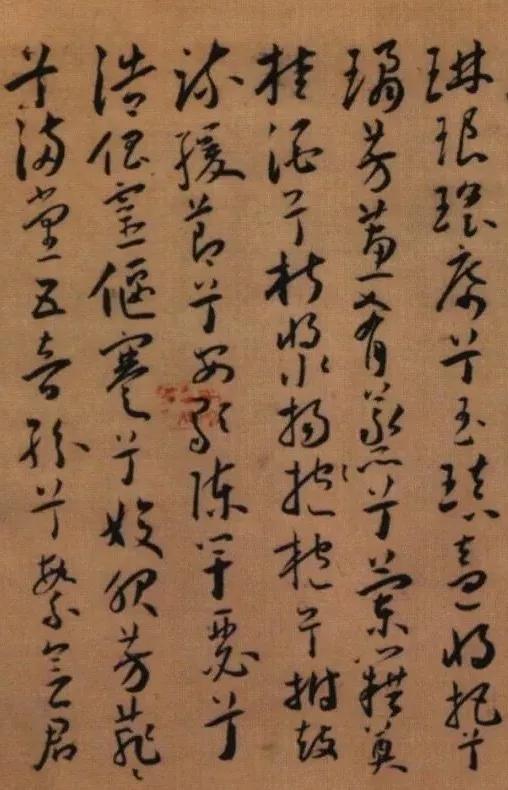 琳琅瑤席兮玉瑱盍將把兮
瓊芳蕙肴蒸兮蘭藉奠
桂酒兮椒漿揚抱枹兮拊鼓
疏緩節兮安歌陳竽瑟兮
浩倡靈偃蹇兮姣服芳菲〻
兮滿堂五音紛兮繁會君